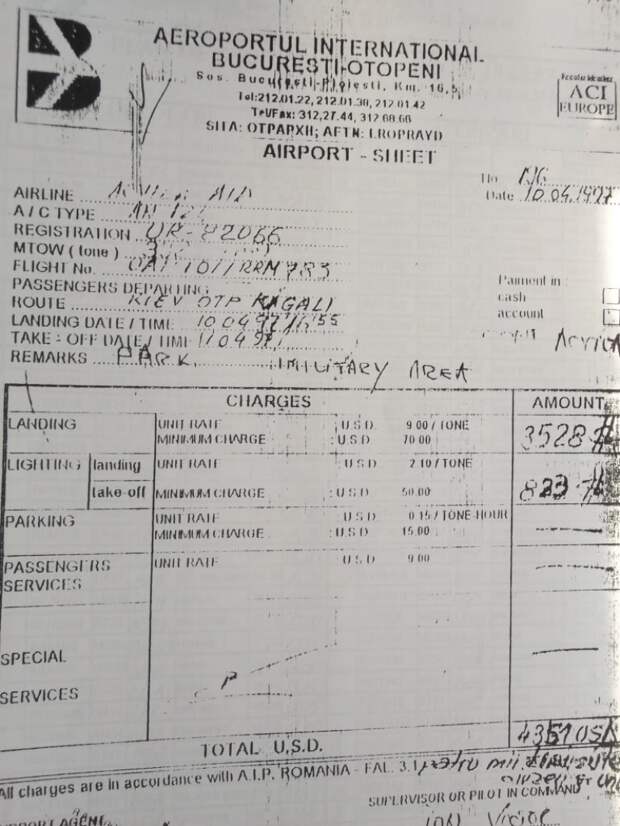 AEROPORTUL INTERNATIONAL
BUCUREŞTI-OTOPENI
Sos. Bucureşti-Ploieşti, Km. 16,5
Tel:212.01.22, 212.01.30, 212.01.42
Tel/Fax: 312.27.44, 312.66.66
SITA: OTPAPXH; AFTN: LROPRAYD
AIRPORT - SHEET
ACI
EUROPE
No
Date 10.04.1997
AIRLINE AIR
A / C TYPE AN 124
REGISTRATION UR-82066
MTOW ( tone )
FLIGHT No.
PASSENGERS DEPARTING
ROUTE KIEV OTP KAGALI
LANDING DATE / TIME 10 04 97
TAKE - OFF DATE / TIME 11.04.97
REMARKS PARK MILITARY AREA
Payment in :
cash
account
CHARGES AMOUNT
LANDING UNIT RATE : U.S.D. 9.00 / TONE
MINIMUM CHARGE : U.S.D. 70.00 3528 $
LIGHTING landing UNIT RATE U.S.D. 2.10 / TONE
take-off MINIMUM CHARGE : U.S.D. 50.00
PARKING UNIT RATE U.S.D. 0.15 / TONE-HOUR
MINIMUM CHARGE : U.S.D. 15.00
PASSENGERS UNIT RATE U.S.D. 9.00
SERVICES
P
SPECIAL
SERVICES
TOTAL U.S.D.
All charges are in accordance with A.I.P. ROMANIA - FAL. 3.1
SUPERVISOR OR PILOT IN COMMAND